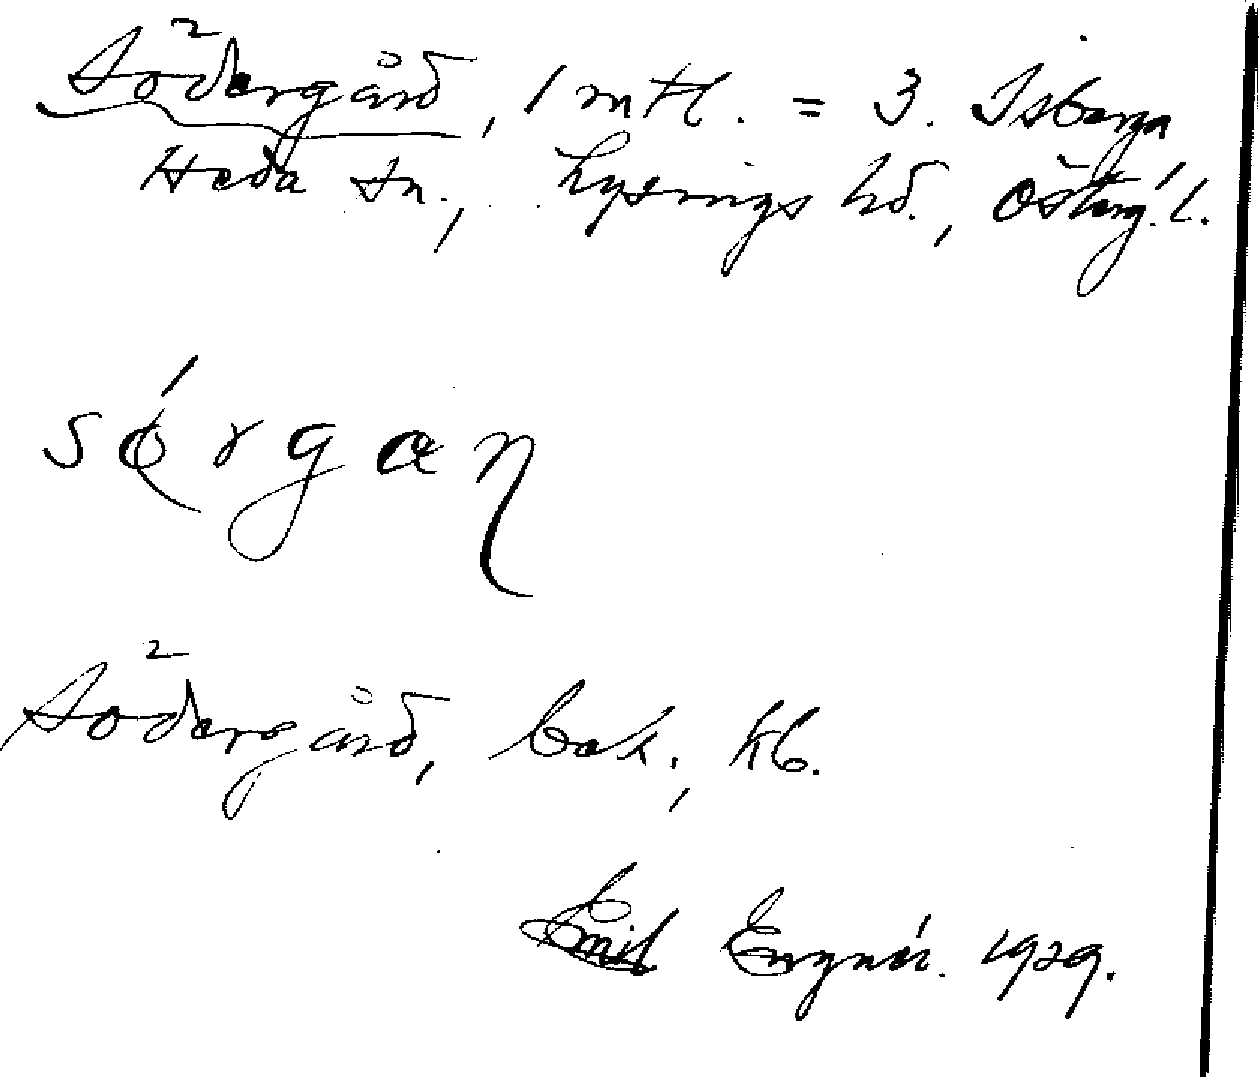 Södergård, 1 mtl. = 3. Isberga
Heda sn., Lysings hd., Österg. l.
sǫ́rgaη
Södergård, bok., kb.
Emil Engnér. 1929.